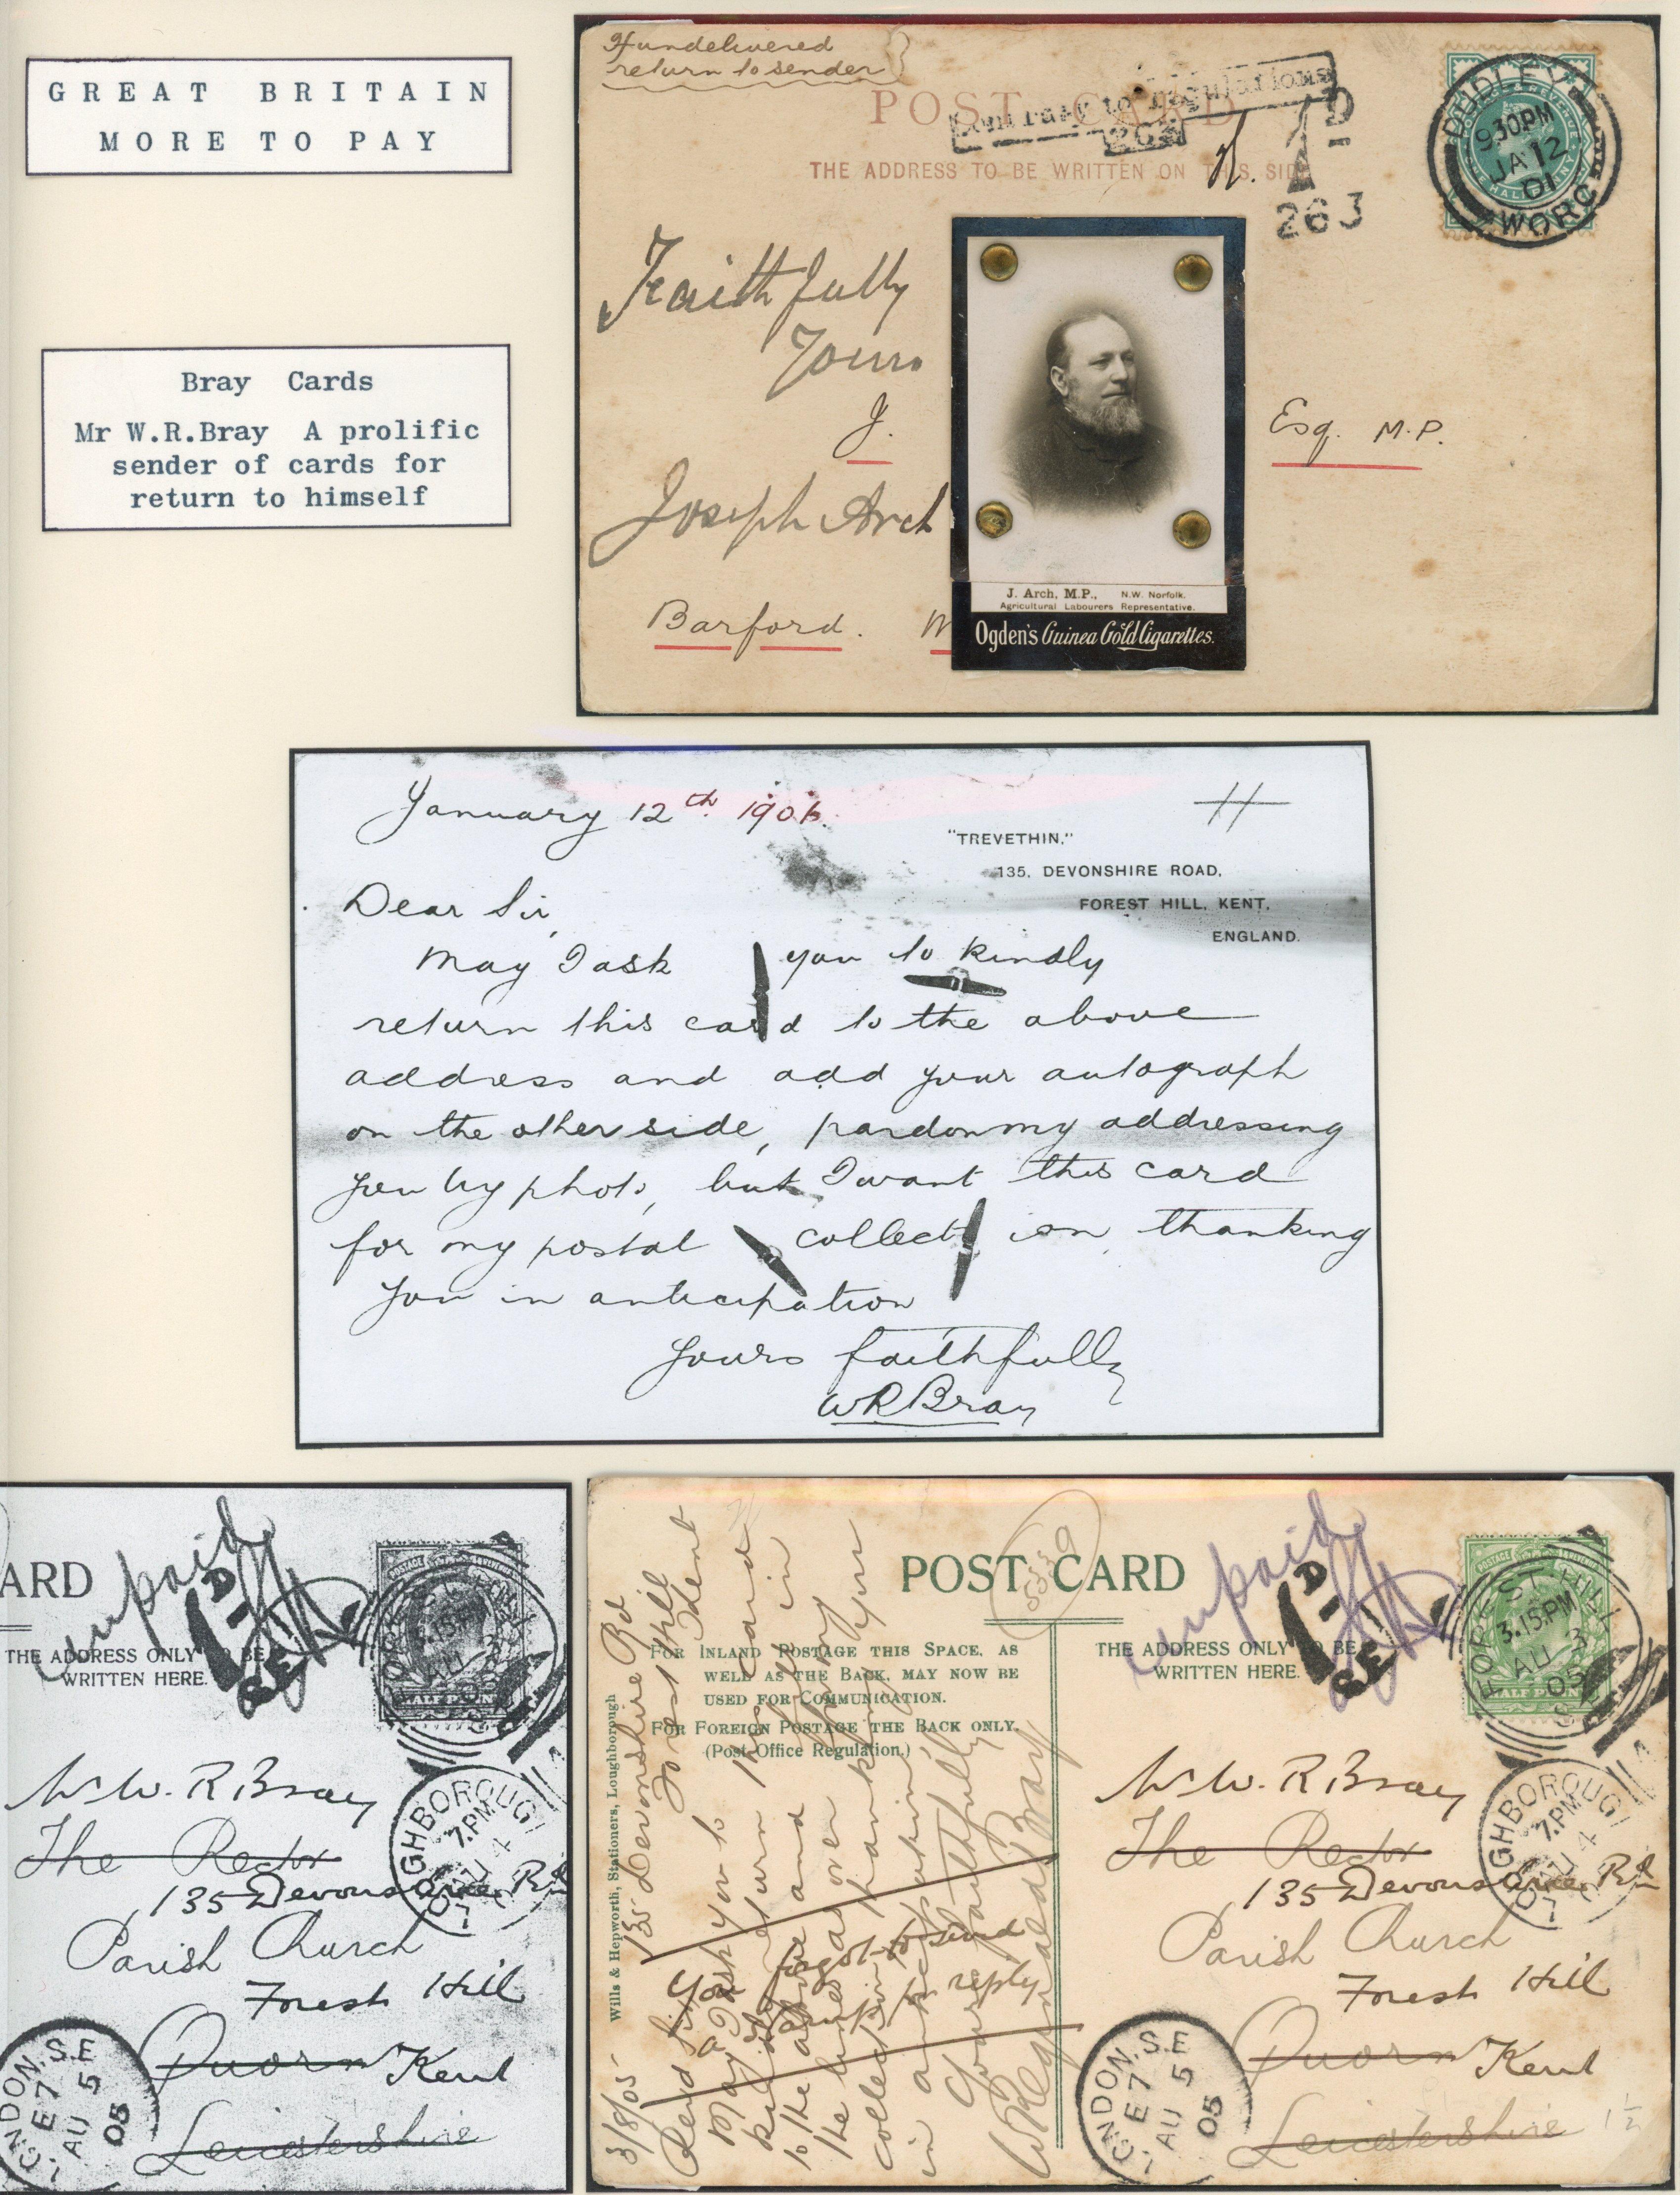 GREAT BRITAIN
MORE TO PAY
Bray Cards
Mr W.R.Bray A prolific
sender of cards for
return to himself
If undelivered
return to sender
POST CARD
Contrary to regulations
263
THE ADDRESS TO BE WRITTEN ON THIS SIDE
1D
263
DUDLEY
9.30PM
JA 12
01
WORC
Faithfully
Yours
J.
Esq. M.P.
Joseph Arch
Barford.
J. Arch, M.P., N.W. Norfolk.
Agricultural Labourers Representative.
Ogden's Guinea Gold Cigarettes.
January 12th 1901.
"TREVETHIN."
135, DEVONSHIRE ROAD,
FOREST HILL, KENT,
ENGLAND.
Dear Sir,
May I ask you to kindly
return this card to the above
address and add your autograph
on the other side, pardon my addressing
you by photo, but I want this card
for my postal collection, thanking
you in anticipation
Yours faithfully
WRBray
ARD
unpaid
1D
SE
THE ADDRESS ONLY TO BE
WRITTEN HERE.
HALF PENNY
Mr W. R Bray
The Rector
135 Devonshire Rd
Parish Church
Forest Hill
Quorn Kent
Leicestershire
GHBOROUG
7.PM
AU 4
NDON.S.E
E7
AU 5
05
POST CARD
FOR INLAND POSTAGE THIS SPACE, AS
WELL AS THE BACK, MAY NOW BE
USED FOR COMMUNICATION.
FOR FOREIGN POSTAGE THE BACK ONLY.
(Post Office Regulation.)
Wills & Hepworth, Stationers, Loughborough
3/8/05 135 Devonshire Rd
Forest Hill
Kent
Revd Sir,
May I ask you to
kindly return this card
to the above and
collection
thanking you
in anticipation
Yours faithfully
W Reginald Bray
You forgot to send
stamp for reply
unpaid
1D
SE
THE ADDRESS ONLY TO BE
WRITTEN HERE.
HALF PENNY
FOREST HILL
3.15PM
AU 3
05
S.E
Mr W. R Bray
The Rector
135 Devonshire Rd
Parish Church
Forest Hill
Quorn Kent
Leicestershire
GHBOROUG
7.PM
AU 4
NDON.S.E
E7
AU 5
05
1½